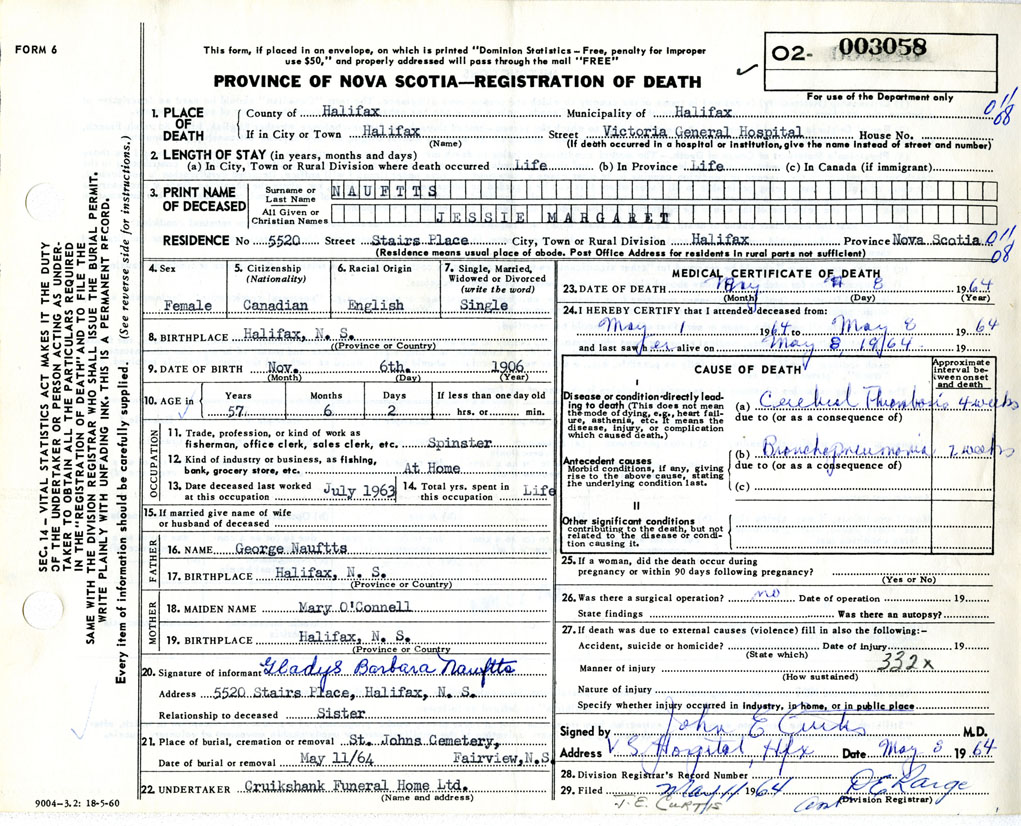 FORM 6
This form, if placed in an envelope, on which is printed "Dominion Statistics – Free, penalty for improper
use $50," and properly addressed will pass through the mail "FREE"
PROVINCE OF NOVA SCOTIA—REGISTRATION OF DEATH
02- 003058
For use of the Department only
011/08
1. PLACE OF DEATH County of Halifax Municipality of Halifax
If in City or Town Halifax Street Victoria General Hospital House No.
(Name) (If death occurred in a hospital or institution, give the name instead of street and number)
2. LENGTH OF STAY (in years, months and days)
(a) In City, Town or Rural Division where death occurred Life (b) In Province Life (c) In Canada (if immigrant)
3. PRINT NAME OF DECEASED Surname or Last Name NAUFTTS
All Given or Christian Names JESSIE MARGARET
RESIDENCE No 5520 Street Stairs Place City, Town or Rural Division Halifax Province Nova Scotia 011/08
(Residence means usual place of abode. Post Office Address for residents in rural parts not sufficient)
4. Sex Female
5. Citizenship (Nationality) Canadian
6. Racial Origin English
7. Single, Married, Widowed or Divorced (write the word) Single
8. BIRTHPLACE Halifax, N. S.
(Province or Country)
9. DATE OF BIRTH Nov. 6th. 1906
(Month) (Day) (Year)
10. AGE in Years Months Days If less than one day old
57 6 2 hrs. or min.
OCCUPATION
11. Trade, profession, or kind of work as
fisherman, office clerk, sales clerk, etc. Spinster
12. Kind of industry or business, as fishing,
bank, grocery store, etc. At Home
13. Date deceased last worked at this occupation July 1963 14. Total yrs. spent in this occupation Life
15. If married give name of wife
or husband of deceased
FATHER
16. NAME George Nauftts
17. BIRTHPLACE Halifax, N. S.
(Province or Country)
MOTHER
18. MAIDEN NAME Mary O'Connell
19. BIRTHPLACE Halifax, N. S.
(Province or Country)
20. Signature of informant Gladys Barbara Nauftts
Address 5520 Stairs Place, Halifax, N. S.
Relationship to deceased Sister
21. Place of burial, cremation or removal St. Johns Cemetery,
Date of burial or removal May 11/64 Fairview, N.S.
22. UNDERTAKER Cruikshank Funeral Home Ltd.
(Name and address)
MEDICAL CERTIFICATE OF DEATH
23. DATE OF DEATH May 8 1964
(Month) (Day) (Year)
24. I HEREBY CERTIFY that I attended deceased from:
May 1 1964 to May 8 1964
and last saw her alive on May 8, 1964 19
CAUSE OF DEATH
Approximate interval between onset and death
I
Disease or condition directly leading to death (This does not mean the mode of dying, e.g., heart failure, asthenia, etc. It means the disease, injury, or complication which caused death.)
(a) Cerebral Thrombosis 4 weeks
due to (or as a consequence of)
Antecedent causes
Morbid conditions, if any, giving rise to the above cause, stating the underlying condition last.
(b) Bronchopneumonia 2 weeks
due to (or as a consequence of)
(c)
II
Other significant conditions
contributing to the death, but not related to the disease or condition causing it.
25. If a woman, did the death occur during
pregnancy or within 90 days following pregnancy?
(Yes or No)
26. Was there a surgical operation? no Date of operation 19
State findings Was there an autopsy?
27. If death was due to external causes (violence) fill in also the following:–
Accident, suicide or homicide? Date of injury 19
(State which) 332x
Manner of injury
(How sustained)
Nature of injury
Specify whether injury occurred in industry, in home, or in public place
Signed by John E Curtis M.D.
Address V. G. Hospital, Hfx Date May 8 1964
28. Division Registrar's Record Number
29. Filed May 11 1964
(Division Registrar)
J. E. CURTIS
SEC. 14 – VITAL STATISTICS ACT MAKES IT THE DUTY
OF THE UNDERTAKER OR PERSON ACTING AS UNDER-
TAKER TO OBTAIN ALL THE PARTICULARS REQUIRED
IN THE "REGISTRATION OF DEATH" AND TO FILE THE
SAME WITH THE DIVISION REGISTRAR WHO SHALL ISSUE THE BURIAL PERMIT.
WRITE PLAINLY WITH UNFADING INK. THIS IS A PERMANENT RECORD.
Every item of information should be carefully supplied. (See reverse side for instructions.)
9004-3.2: 18-5-60